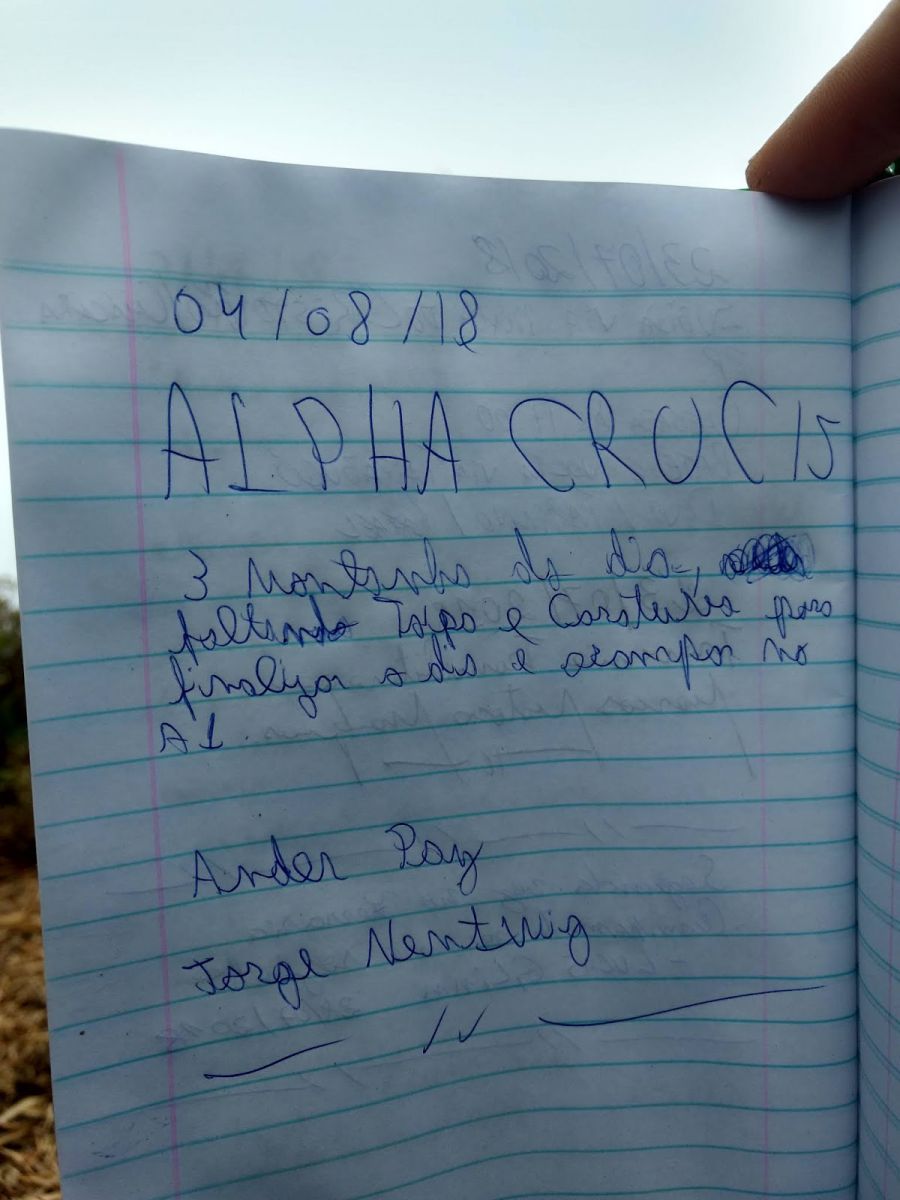 04/08/18
ALPHA CRUCIS
3 Montanha do dia,
faltando Taipa e Caratuva para
finalizar o dia e acampar no
A1.
Ander Pay
Jorge Nentwig